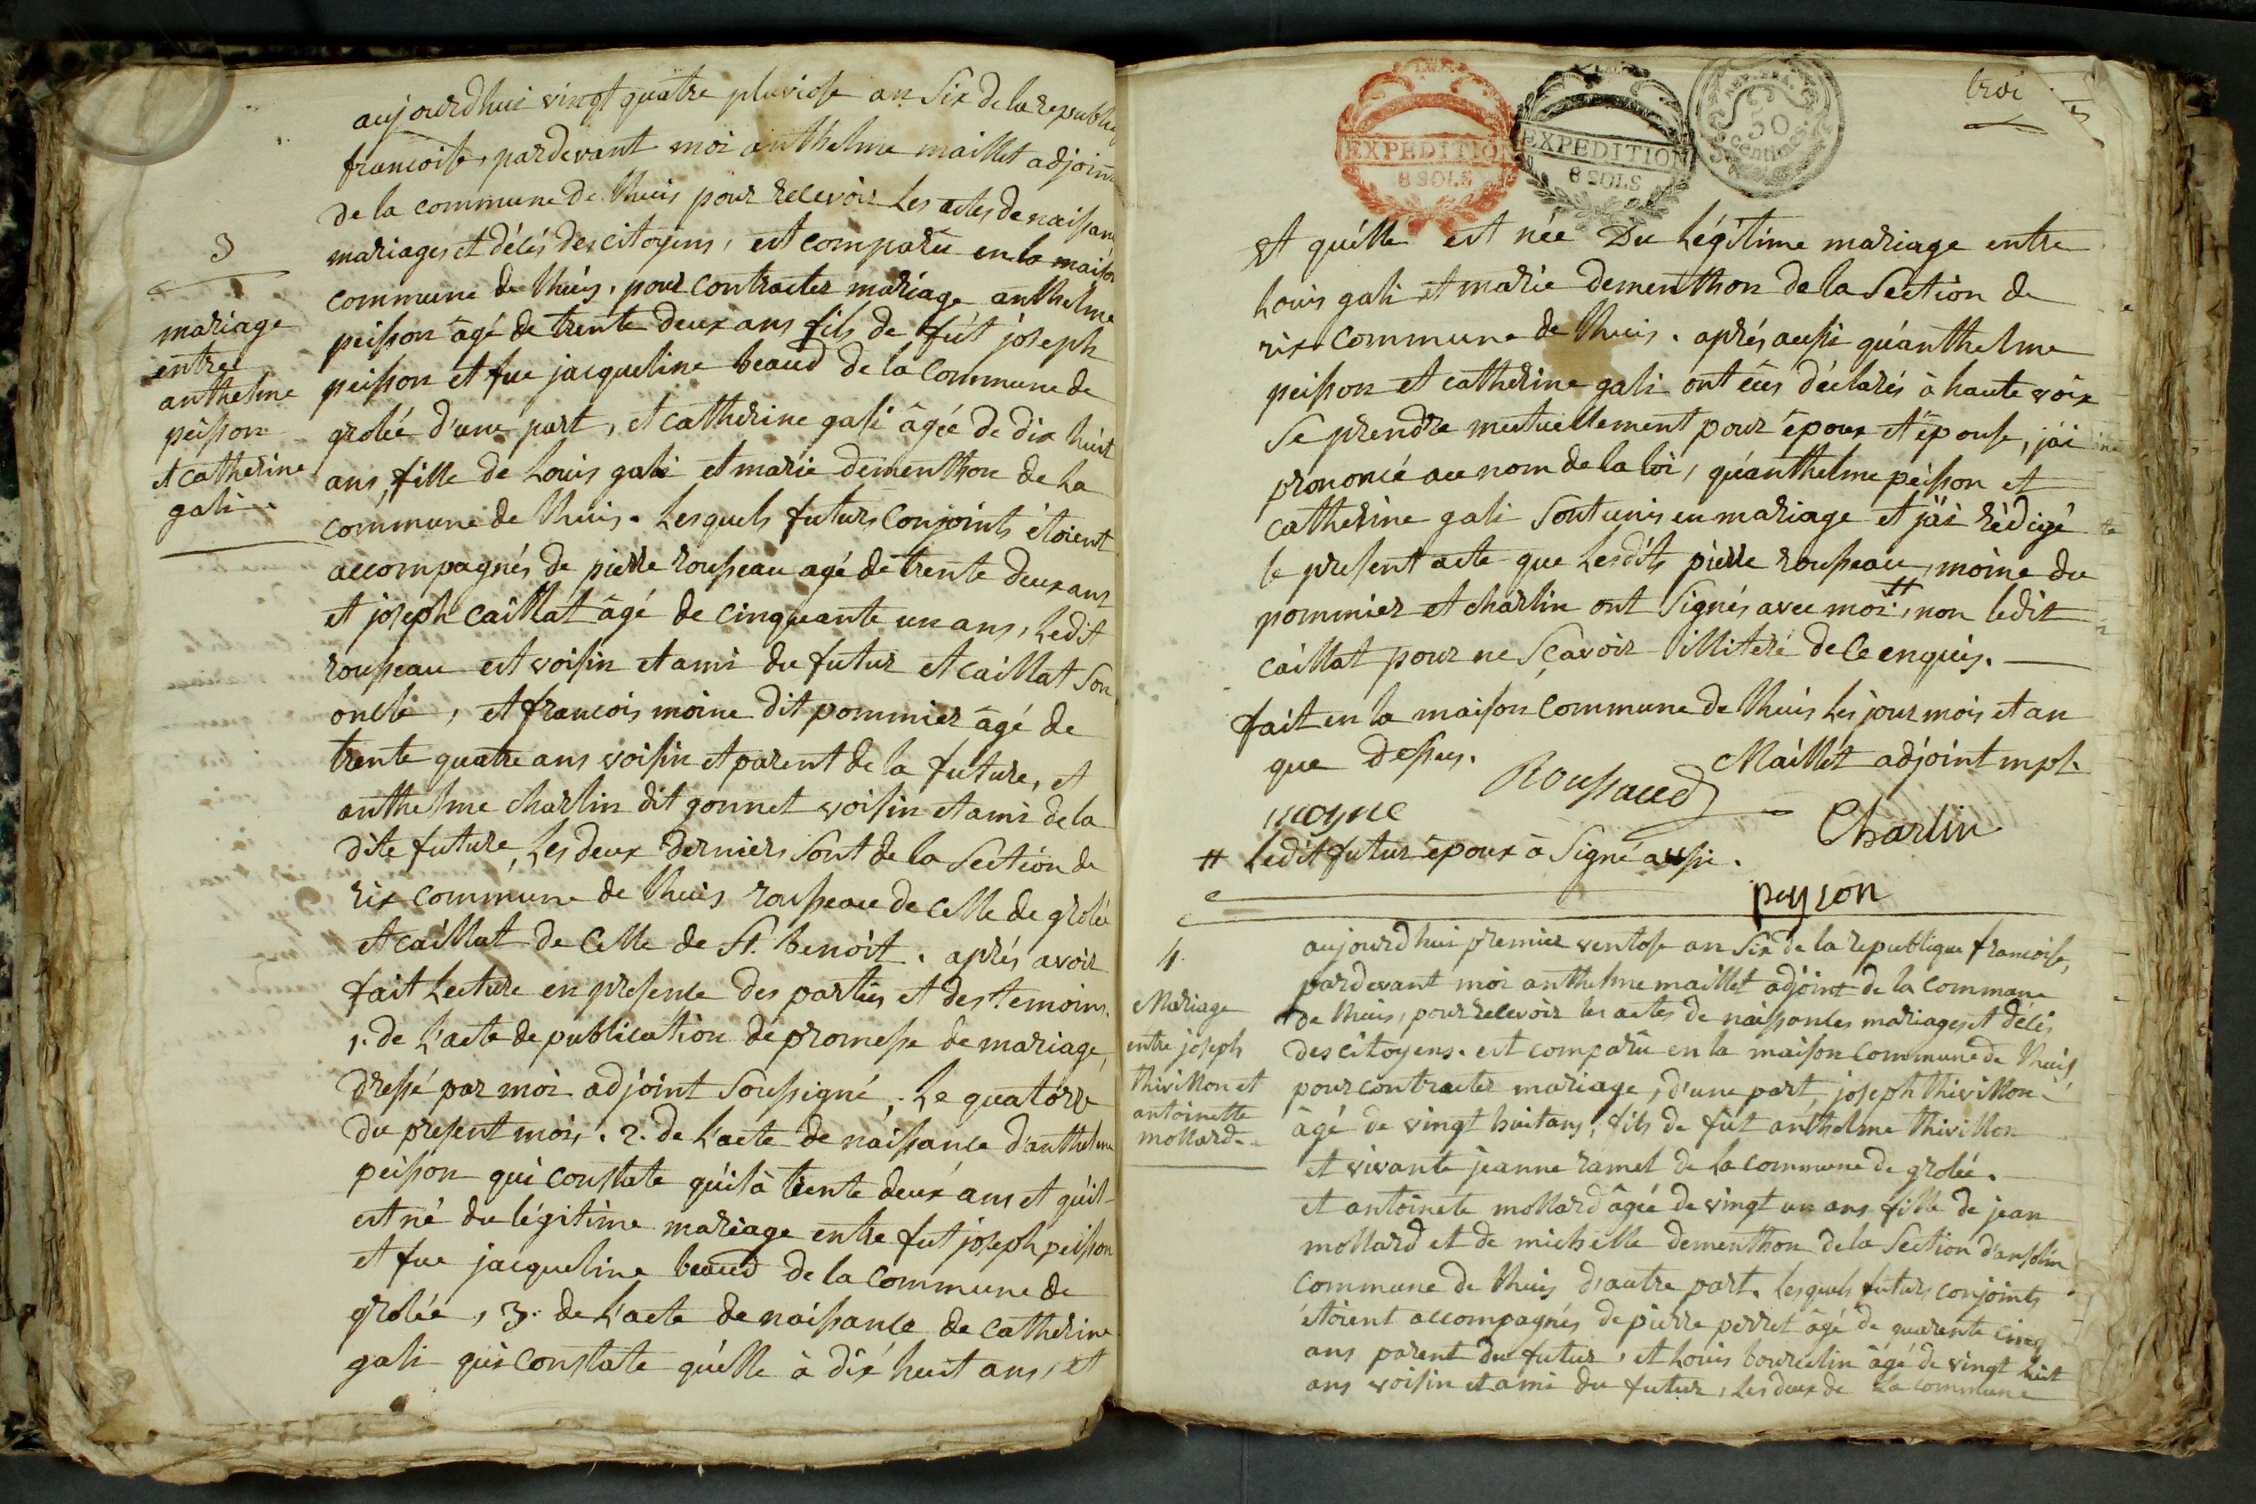 aujourdhui vingt quatre pluviose an Six de la republiq
francoise, pardevant moi anthelme maillet adjoint
de la commune de thuis pour recevoir Les actes de naissan
mariages et décés des citoyens, est comparu en la maison
commune de thuis, pour contracter mariage anthelme
peisson âgé de trente deux ans fils de fut joseph
peisson et fue jacqueline beaud de la Commune de
grolée d'une part, et catherine gali âgée de dix huit
ans, fille de Louis gali et marie dementhon de La
commune de thuis. Lesquels futurs Conjoints étoient
accompagnés de pierre rousseau agé de trente deux ans
et joseph caillat âgé de cinquante un ans, Ledit
rousseau est voisin et ami du futur et caillat Son
oncle, et francois moine dit pommier âgé de
trente quatre ans voisin et parent de la future, et
anthelme charlin dit gonnet voisin et ami de la
dite future, Les deux derniers Sont de la Section de
rix commune de thuis rousseau de celle de grolée
et caillat de Celle de St. benoit. aprés avoir
fait Lecture en presence des parties et des temoins.
1. de L'acte de publication de promesse de mariage,
dressé par moi adjoint Soussigné, Le quatorze
du present mois. 2. de L'acte de naissance d'anthelme
peisson qui constate qu'il à trente deux ans et qu'il
est né du légitime mariage entre fut joseph peisson
et fue jacqueline beaud de la Commune de
grolée, 3. de L'acte de naissance de Catherine
gali qui Constate qu'elle à dix huit ans, et
3
mariage
entre
anthelme
peisson
et catherine
gali.
EXPEDITION
8 SOLS
EXPEDITION
8 SOLS
50
centimes
troi
et qu'elle est née Du Légitime mariage entre
Louis gali et marie dementhon de la Section de
rix Commune de thuis. aprés aussi qu'anthelme
peisson et catherine gali ont eûs déclarés à haute voix
Se prendre mutuellement pour époux et épouse, j'ai
prononcé au nom de la loi, qu'anthelme peisson et
catherine gali Sont unis en mariage et j'ai rédigé
le present acte que Lesdits pierre rousseau, moine du
pommier et charlin ont Signés avec moi #, non ledit
caillat pour ne Sçavoir illiteré de Ce enquis.
fait en la maison Commune de thuis Les jour mois et an
que dessus.
Maillet adjoint mpl.
Roussaud
moyne
Charlin
# Ledit futur époux à Signé aussi.
peyson
4.
Mariage
entre joseph
thivillon et
antoinette
mollard.
aujourdhui premier ventose an Six de la republique francoise,
pardevant moi anthelme maillet adjoint de la Commune
de thuis, pour recevoir les actes de naissances mariages et décés
des citoyens. est comparu en la maison Commune de thuis,
pour contracter mariage, d'une part, joseph thivillon
âgé de vingt huit ans, fils de fut anthelme thivillon
et vivante jeanne ramel de La commune de grolée.
et antoinete mollard âgée de vingt un ans fille de jean
mollard et de michelle dementhon de la Section d'ansolin
Commune de thuis d'autre part. Lesquels futurs conjoints
étoient accompagnés de pierre perret âgé de quarente cinq
ans parent du futur, et Louis bourcelin âgé de vingt huit
ans voisin et ami du futur, Les deux de La Commune